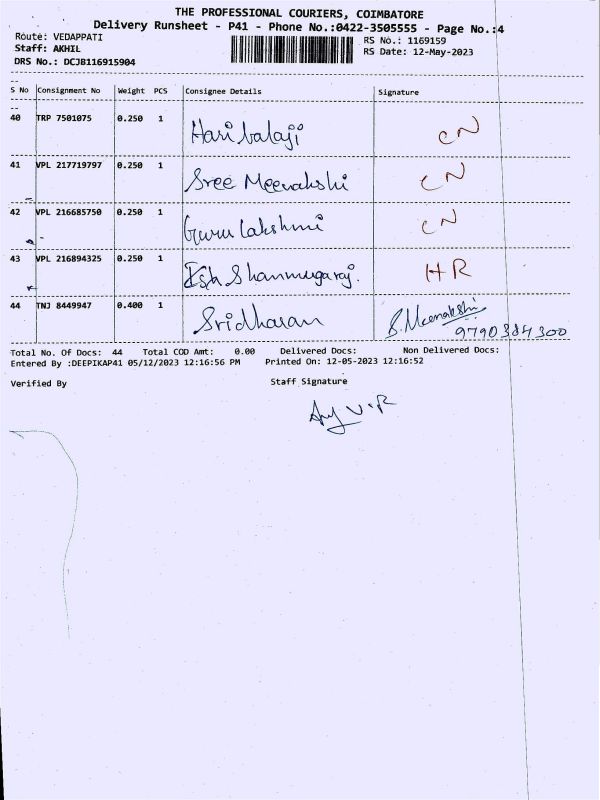 THE PROFESSIONAL COURIERS, COIMBATORE
Delivery Runsheet - P41 - Phone No.:0422-3505555 - Page No.:4
Route: VEDAPPATI RS No.: 1169159
Staff: AKHIL RS Date: 12-May-2023
DRS No.: DCJB116915904
S No Consignment No Weight PCS Consignee Details Signature
40 TRP 7501075 0.250 1 Haribalaji CN
41 VPL 217719797 0.250 1 Sree Meenakshi CN
42 VPL 216685750 0.250 1 Guru Lakshmi CN
43 VPL 216894325 0.250 1 Esh Shanmugaraj. HR
44 TNJ 8449947 0.400 1 Sridharan B. Meenakshi
9790384300
Total No. Of Docs: 44 Total COD Amt: 0.00 Delivered Docs: Non Delivered Docs:
Entered By :DEEPIKAP41 05/12/2023 12:16:56 PM Printed On: 12-05-2023 12:16:52
Verified By Staff Signature